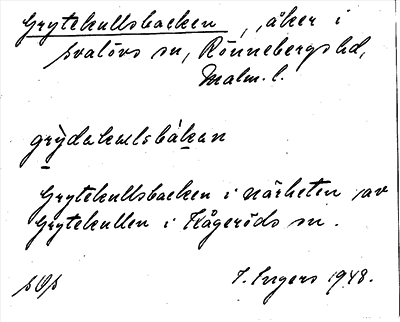 Grytekullsbacken, åker i
Svalövs sn, Rönnebergs hd,
Malm. l.
grỳdakulsbákan
Grytekullsbacken i närheten av
Grytekullen i Kågeröds sn.
I. Ingers 1948.